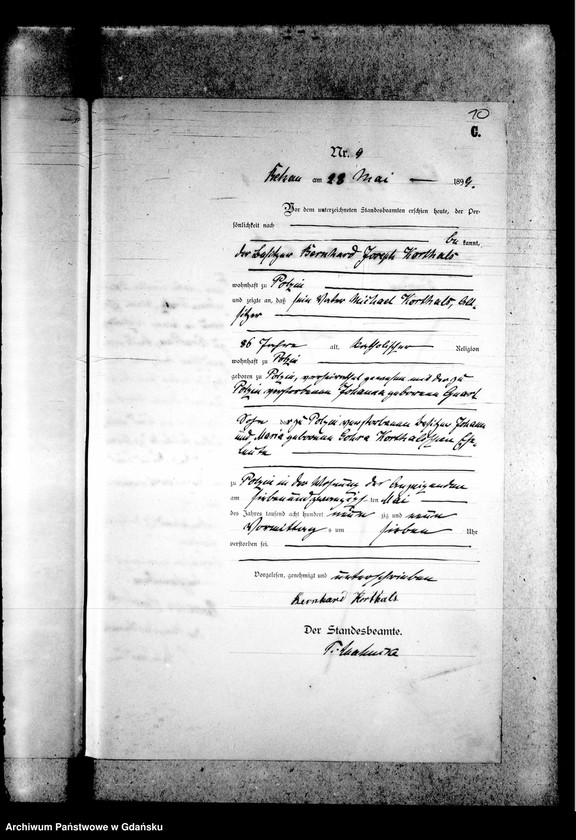 10
C.
Nr. 9
am 28 Mai 1899.
Vor dem unterzeichneten Standesbeamten erschien heute, der Per-
sönlichkeit nach
be kannt,
der Besitzer Bernhard Joseph Korthals
wohnhaft zu Polzin
und zeigte an, daß sein Vater Michael Korthals, Alt-
sitzer
86 Jahre alt, katholischer Religion
wohnhaft zu Polzin
geboren zu Polzin, verheirathet gewesen mit der zu
Polzin verstorbenen Johanna geborenen
Sohn der zu Polzin verstorbenen Besitzer Johann
und Maria geborenen Korthals'schen Ehe-
leute
zu Polzin in der Wohnung des Anzeigenden
am siebenundzwanzigsten Mai
des Jahres tausend acht hundert neun zig und neun
Vormittag s um sieben Uhr
verstorben sei.
Vorgelesen, genehmigt und unterschrieben
Bernhard Korthals
Der Standesbeamte.
Archiwum Państwowe w Gdańsku